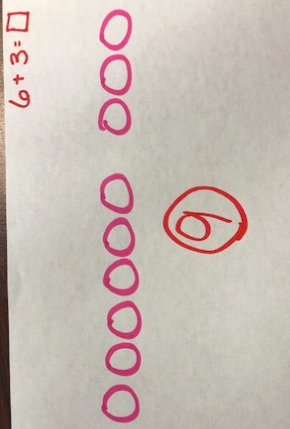 6 + 3 = □
9